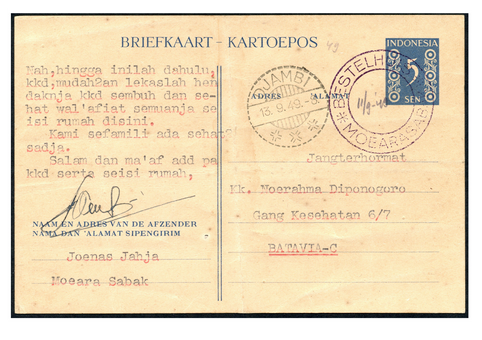 BRIEFKAART - KARTOEPOS
49
INDONESIA
5
SEN
Nah,hingga inilah dahulu,
kkd,mudah2an lekaslah hen
daknja kkd sembuh dan se-
hat wal'afiat semuanja se
isi rumah disini.
Kami sefamili ada sehat
sadja.
Salam dan ma'af add pa
kkd serte seisi rumah,
NAAM EN ADRES VAN DE AFZENDER
NAMA DAN 'ALAMAT SIPENGIRIM
Joenas Jahja
Moeara Sabak
DJAMBI
13.9.49.-8
ADRES
ALAMAT
BESTELH
MOEARASAB
Jangterhormat
Kk. Noerahma Diponogoro
Gang Kesehatan 6/7
BATAVIA-C